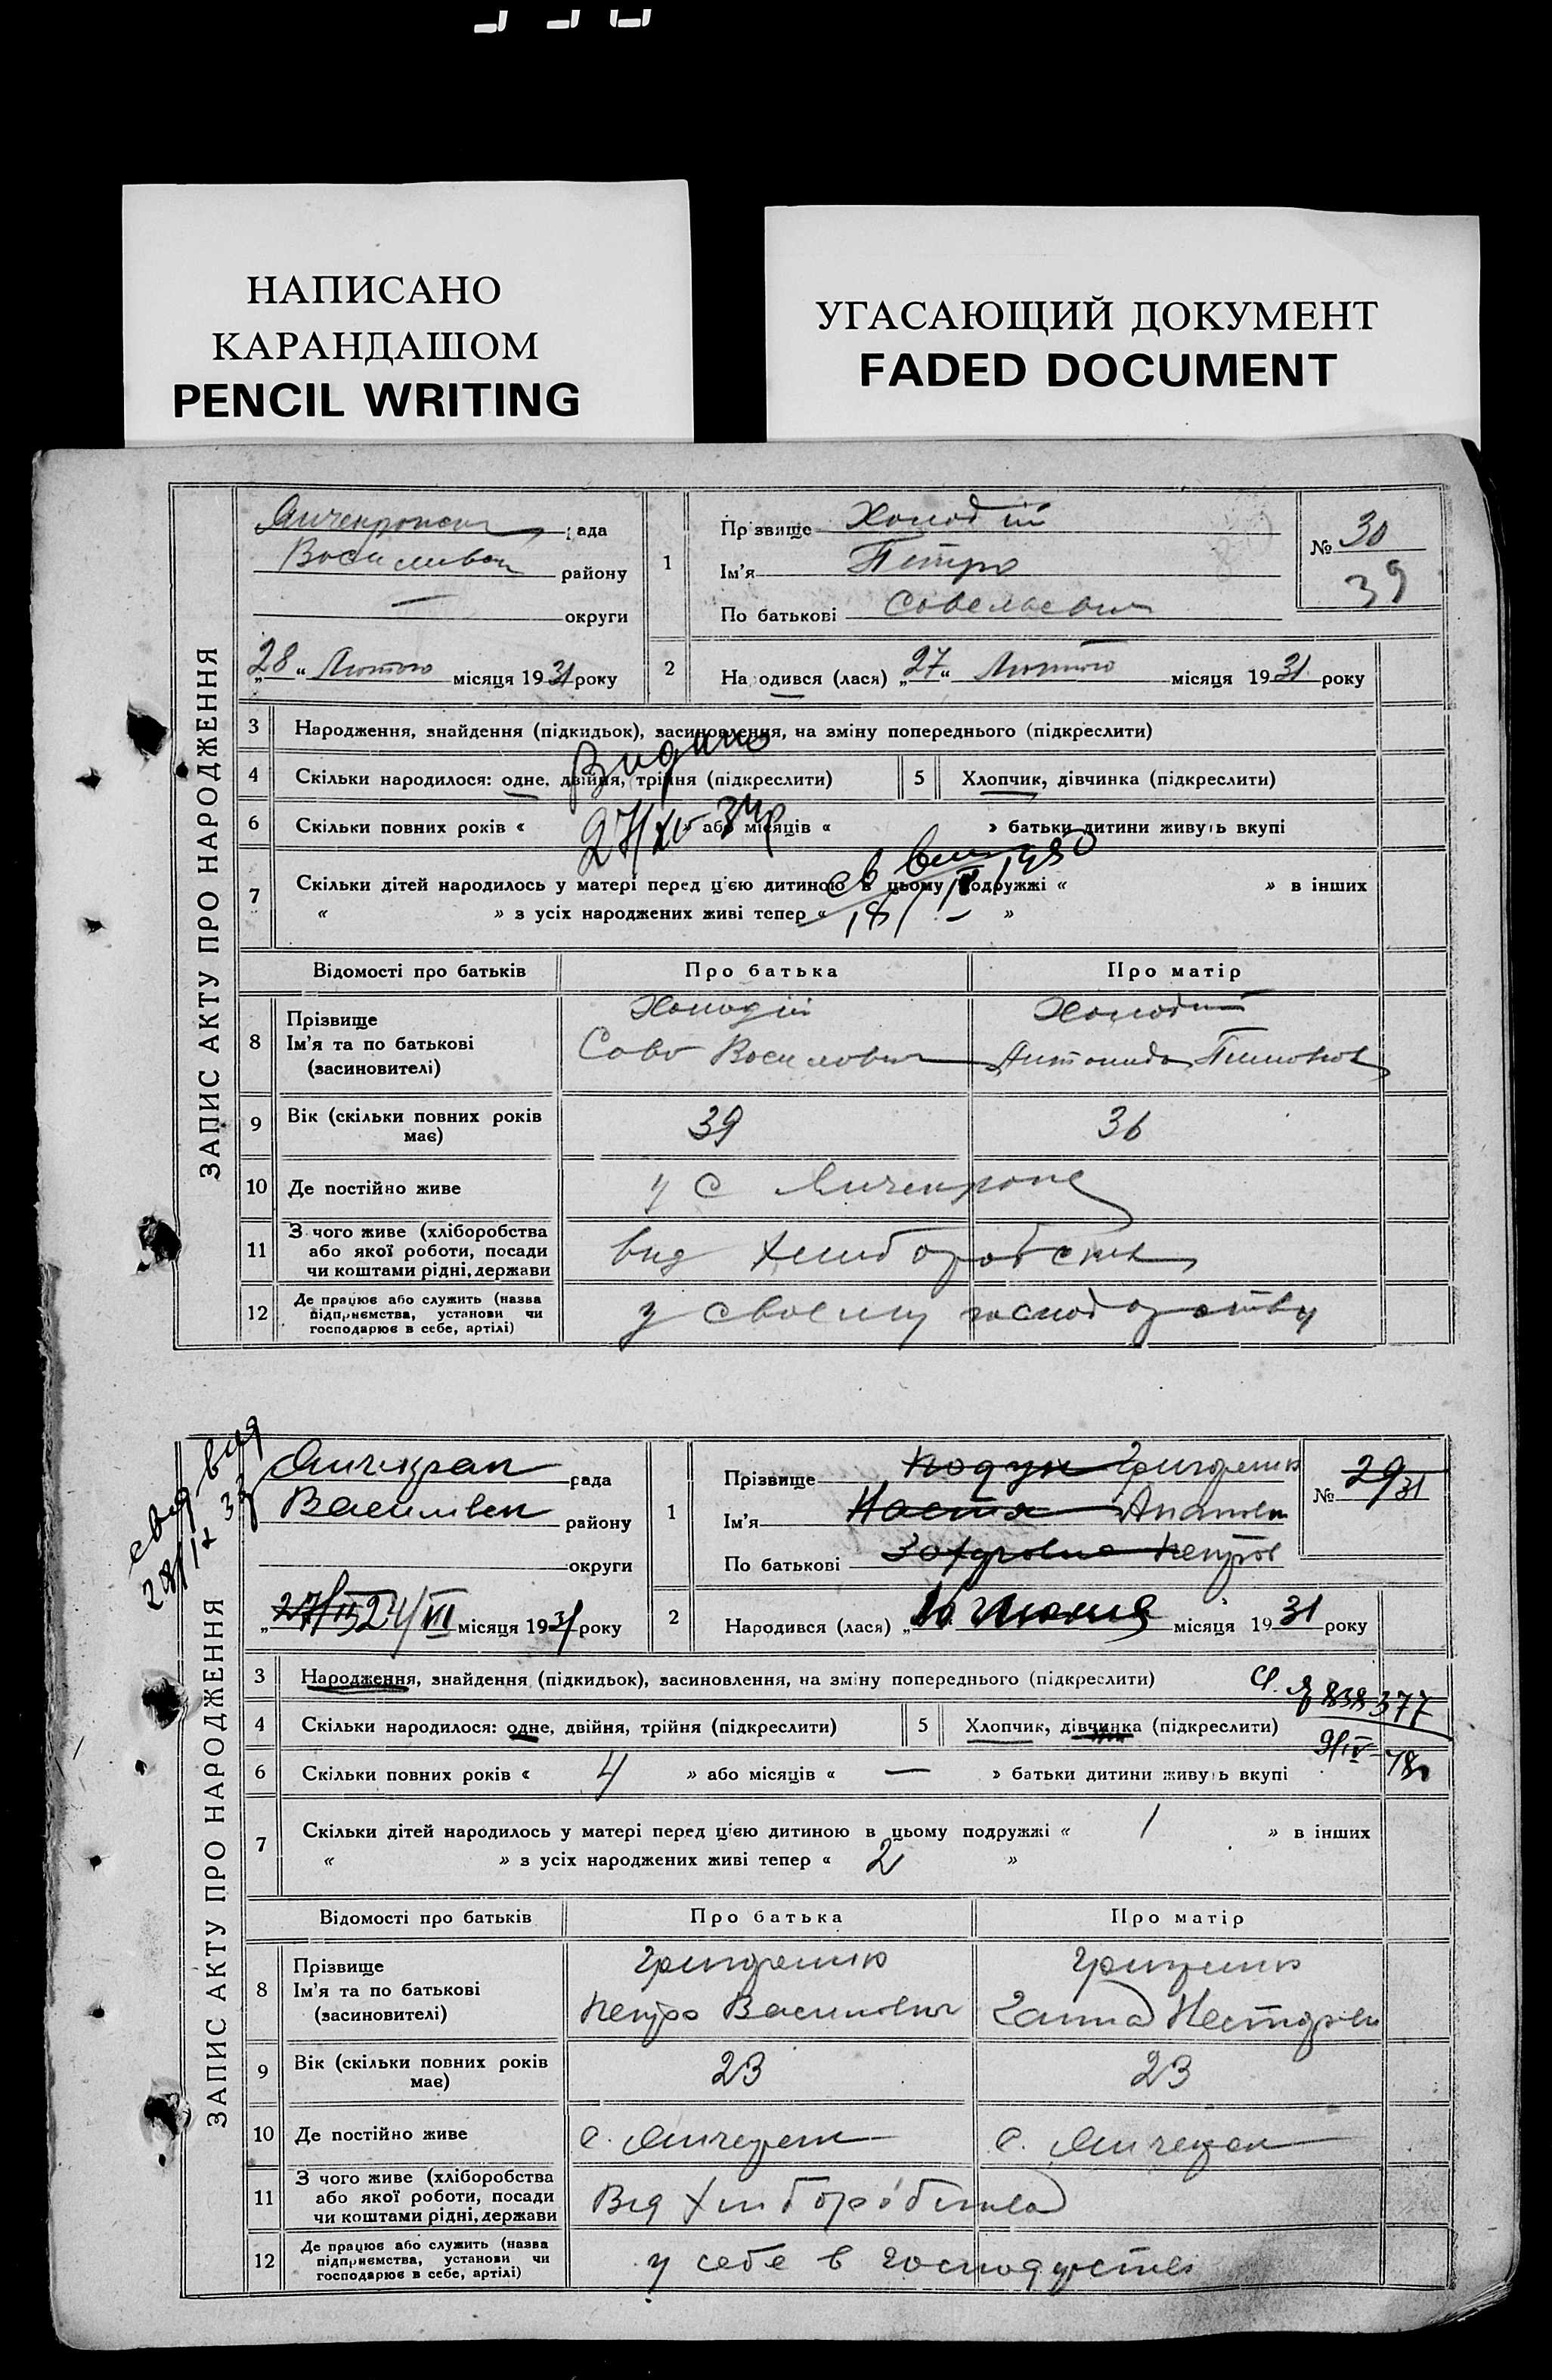 НАПИСАНО
КАРАНДАШОМ
PENCIL WRITING
УГАСАЮЩИЙ ДОКУМЕНТ
FADED DOCUMENT
ЗАПИС АКТУ ПРО НАРОДЖЕННЯ
рада
району
— округи
„28“ Лютого місяця 1931 року
1
Прізвище Холодій
Ім'я Петро
По батькові Савельевич
№ 30
39
2
Народився (лася) „27“ Лютого місяця 1931 року
3 Народження, знайдення (підкидьок), засиновлення, на зміну попереднього (підкреслити)
Видано
4 Скільки народилося: одне, двійня, трійня (підкреслити)
5 Хлопчик, дівчинка (підкреслити)
6 Скільки повних років « » або місяців « » батьки дитини живуть вкупі
7 Скільки дітей народилось у матері перед цією дитиною в цьому подружжі « » в інших
« » з усіх народжених живі тепер « »
Відомості про батьків
Про батька
Про матір
8 Прізвище
Ім'я та по батькові
(засиновителі)
Холодій
Холодій
9 Вік (скільки повних років
має)
39
36
10 Де постійно живе
у с
11 З чого живе (хліборобства
або якої роботи, посади
чи коштами рідні, держави
вид
12 Де працює або служить (назва
підприємства, установи чи
господарює в себе, артілі)
у своему господарству
ЗАПИС АКТУ ПРО НАРОДЖЕННЯ
Янчекрак рада
Василівськ району
округи
27/II 24/III місяця 1931 року
1
Прізвище Кодук Григоренко
Ім'я Настя
По батькові Петров
№ 29 31
2
Народився (лася) місяця 1931 року
3 Народження, знайдення (підкидьок), засиновлення, на зміну попереднього (підкреслити)
4 Скільки народилося: одне, двійня, трійня (підкреслити)
5 Хлопчик, дівчинка (підкреслити)
6 Скільки повних років « 4 » або місяців « — » батьки дитини живуть вкупі
7 Скільки дітей народилось у матері перед цією дитиною в цьому подружжі « 1 » в інших
« » з усіх народжених живі тепер « 2 »
Відомості про батьків
Про батька
Про матір
8 Прізвище
Ім'я та по батькові
(засиновителі)
Григоренко
Петро Василович
Ганна
9 Вік (скільки повних років
має)
23
23
10 Де постійно живе
с. Янчекрак
с. Янчекрак
11 З чого живе (хліборобства
або якої роботи, посади
чи коштами рідні, держави
Від хліборобства
12 Де працює або служить (назва
підприємства, установи чи
господарює в себе, артілі)
у себе в господарстві